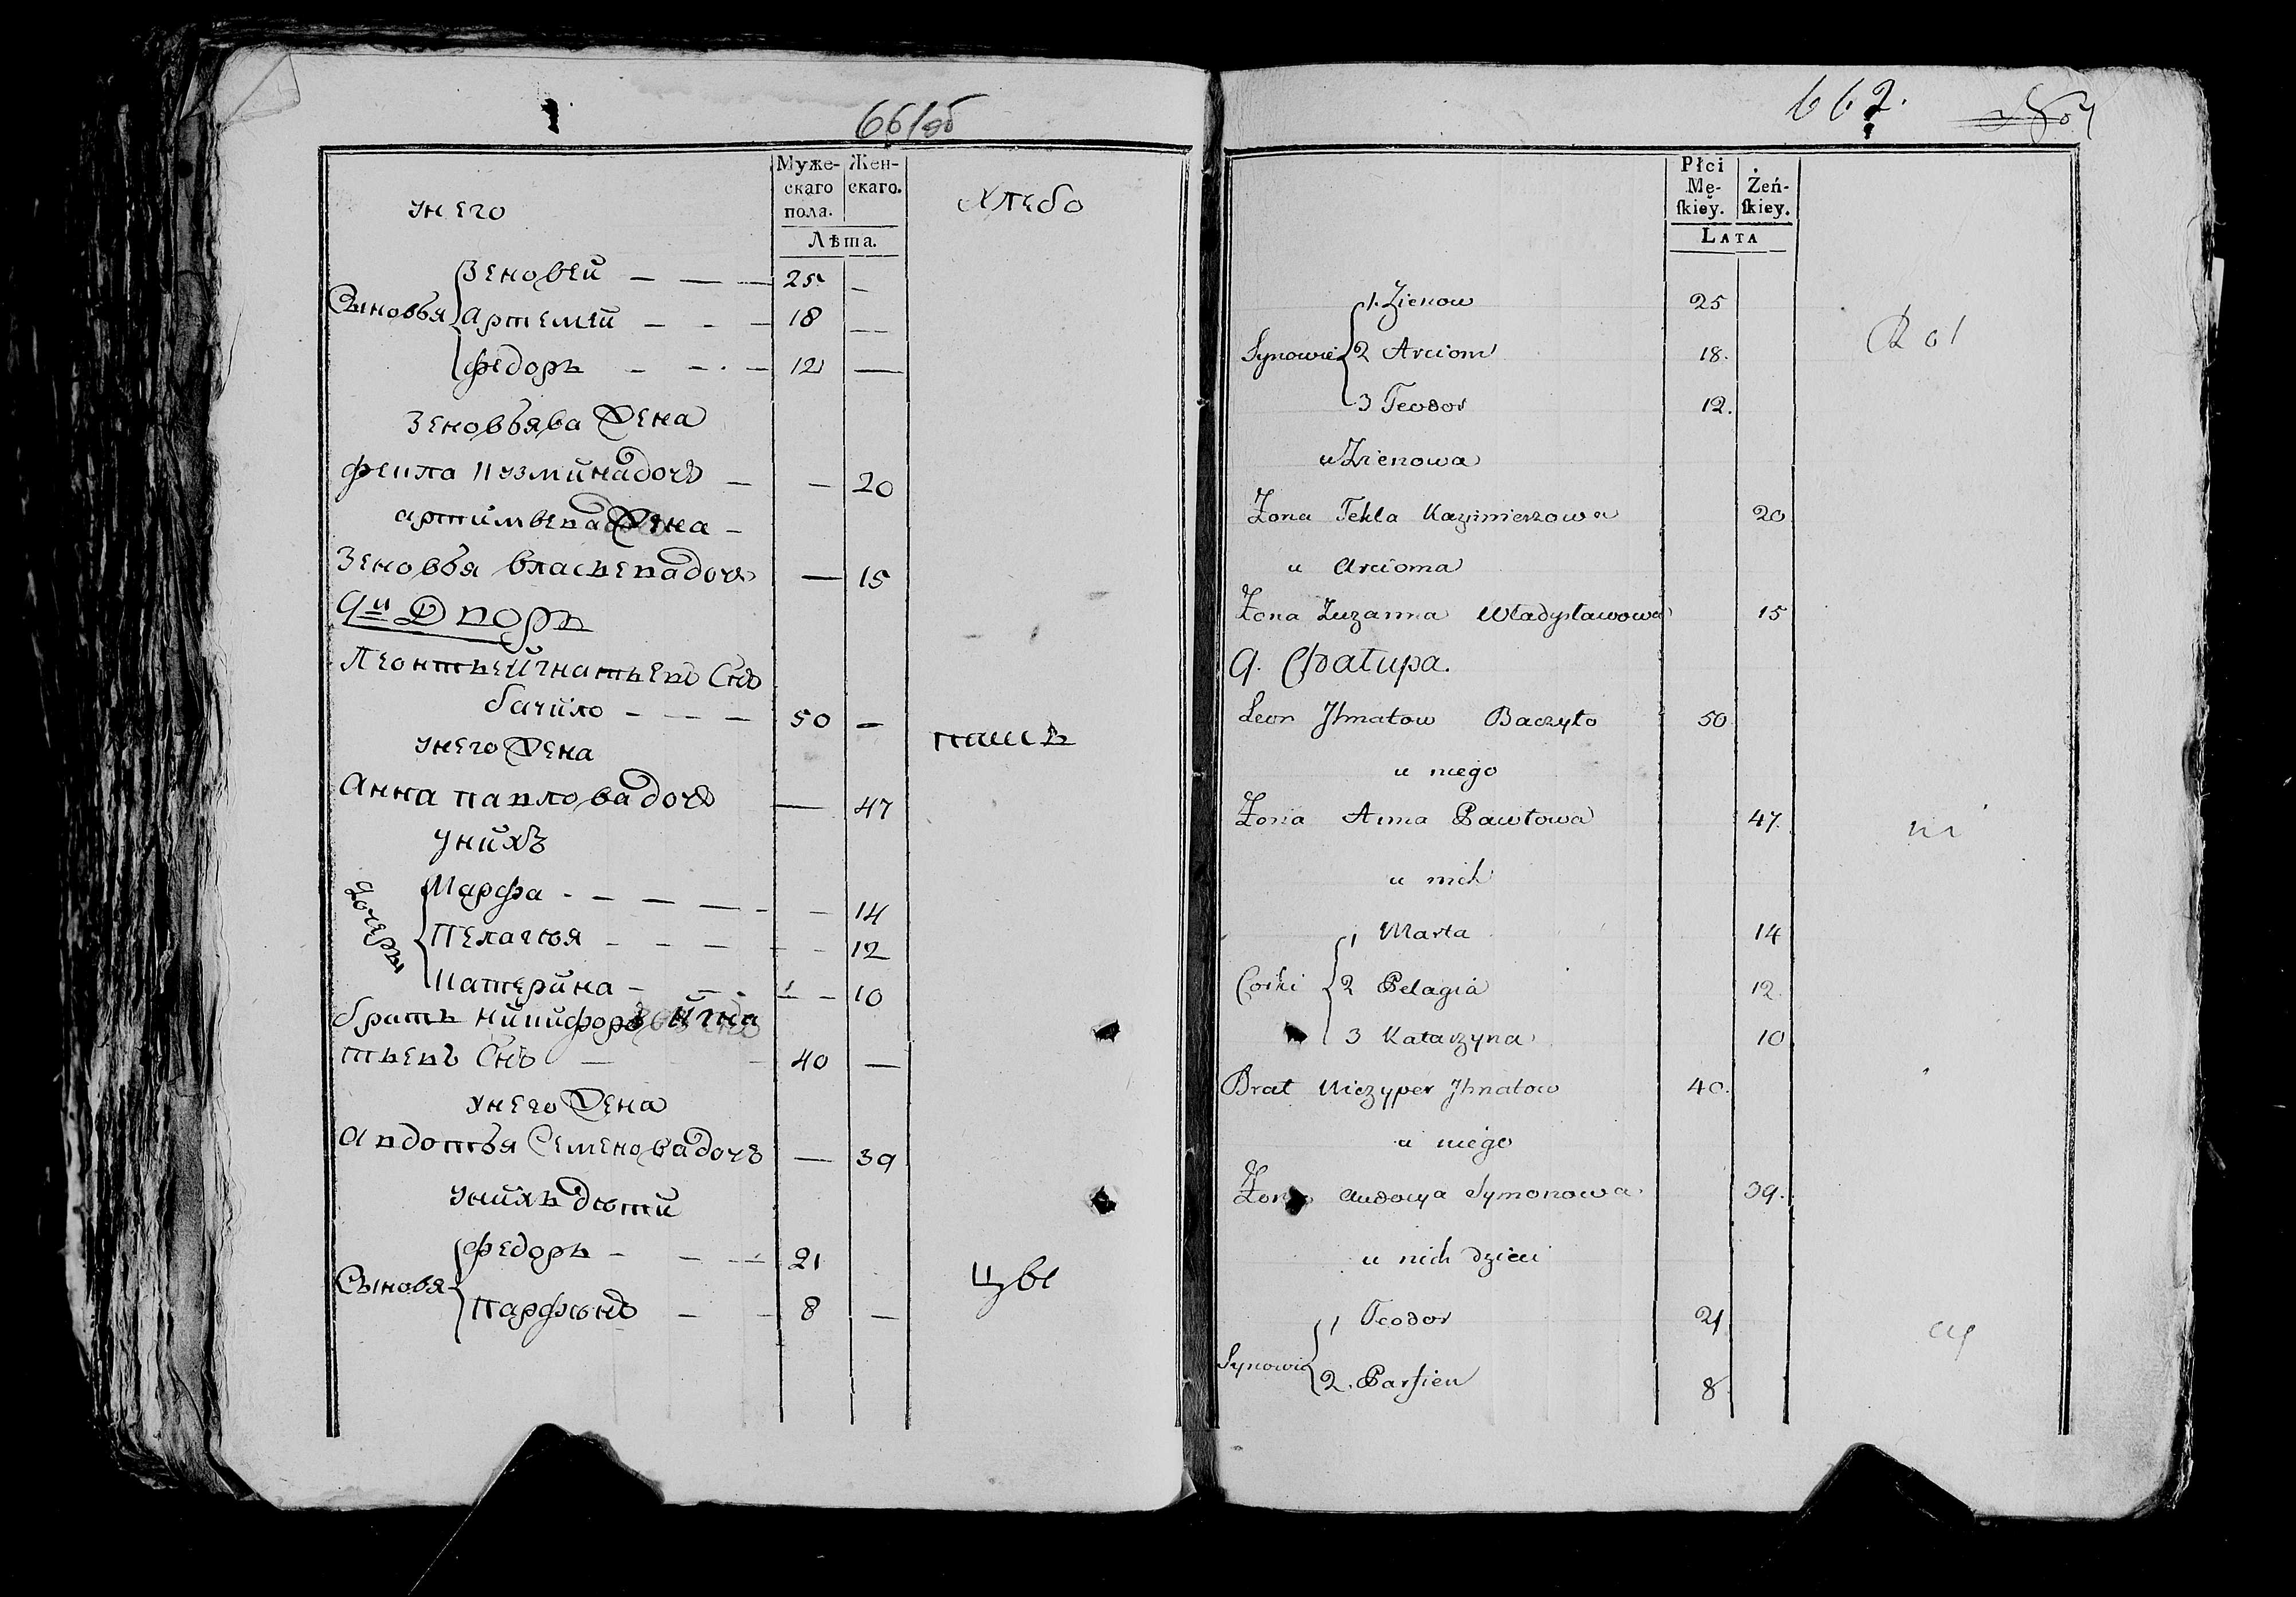 661об
Муже- Жен-
скаго скаго.
пола.
Лѣта.
унего
хлебо
Зеновей — — — 25 —
Сыновья Артемей — - — 18 —
Федоръ — — - — 12 —
Зеновьява Жена
Фекла Кузмина дочь — — 20
Артимьева Жена —
Зеновья Власьева дочь — 15
9й Дворъ
Леонтьей Игнатьевъ Снъ
бачило - — — 50 —
пашъ
унего Жена
Анна павлова дочь — 47
унихъ
дочеры
Марфа - — — — - — 14
Пелагѣя — — — — - — 12
Катерина - — - — — 10
братъ Никифоръ Игна
тьевъ Снъ — 40 —
унего Жена
Авдотья Семенова дочь — 39
унихъ дѣти
Федоръ — — — 21
Сыновя
цы
Парфѣнъ — - 8 —
662.
Płci
Mę- Żeń-
skiey. skiey.
LATA
1. Zienow 25
Rol
Synowie 2 Arciom 18.
3 Teodor 12.
u Zienowa
Żona Tekla Kazimierzowa 20
u Arcioma
Żona Zuzanna Władysławowa 15
9. Chatupa.
Leon Jhnatow Baczyło 50
u niego
Żona Anna Pawłowa 47.
ni
u nich
1 Marta 14
Corki 2 Pelagia 12.
3 Katarzyna 10
Brat Niczyper Jhnatow 40.
u niego
Żona Audocya Symonowa 39.
u nich dzieci
1 Teodor 21
cy
Synowie
2. Parfien 8